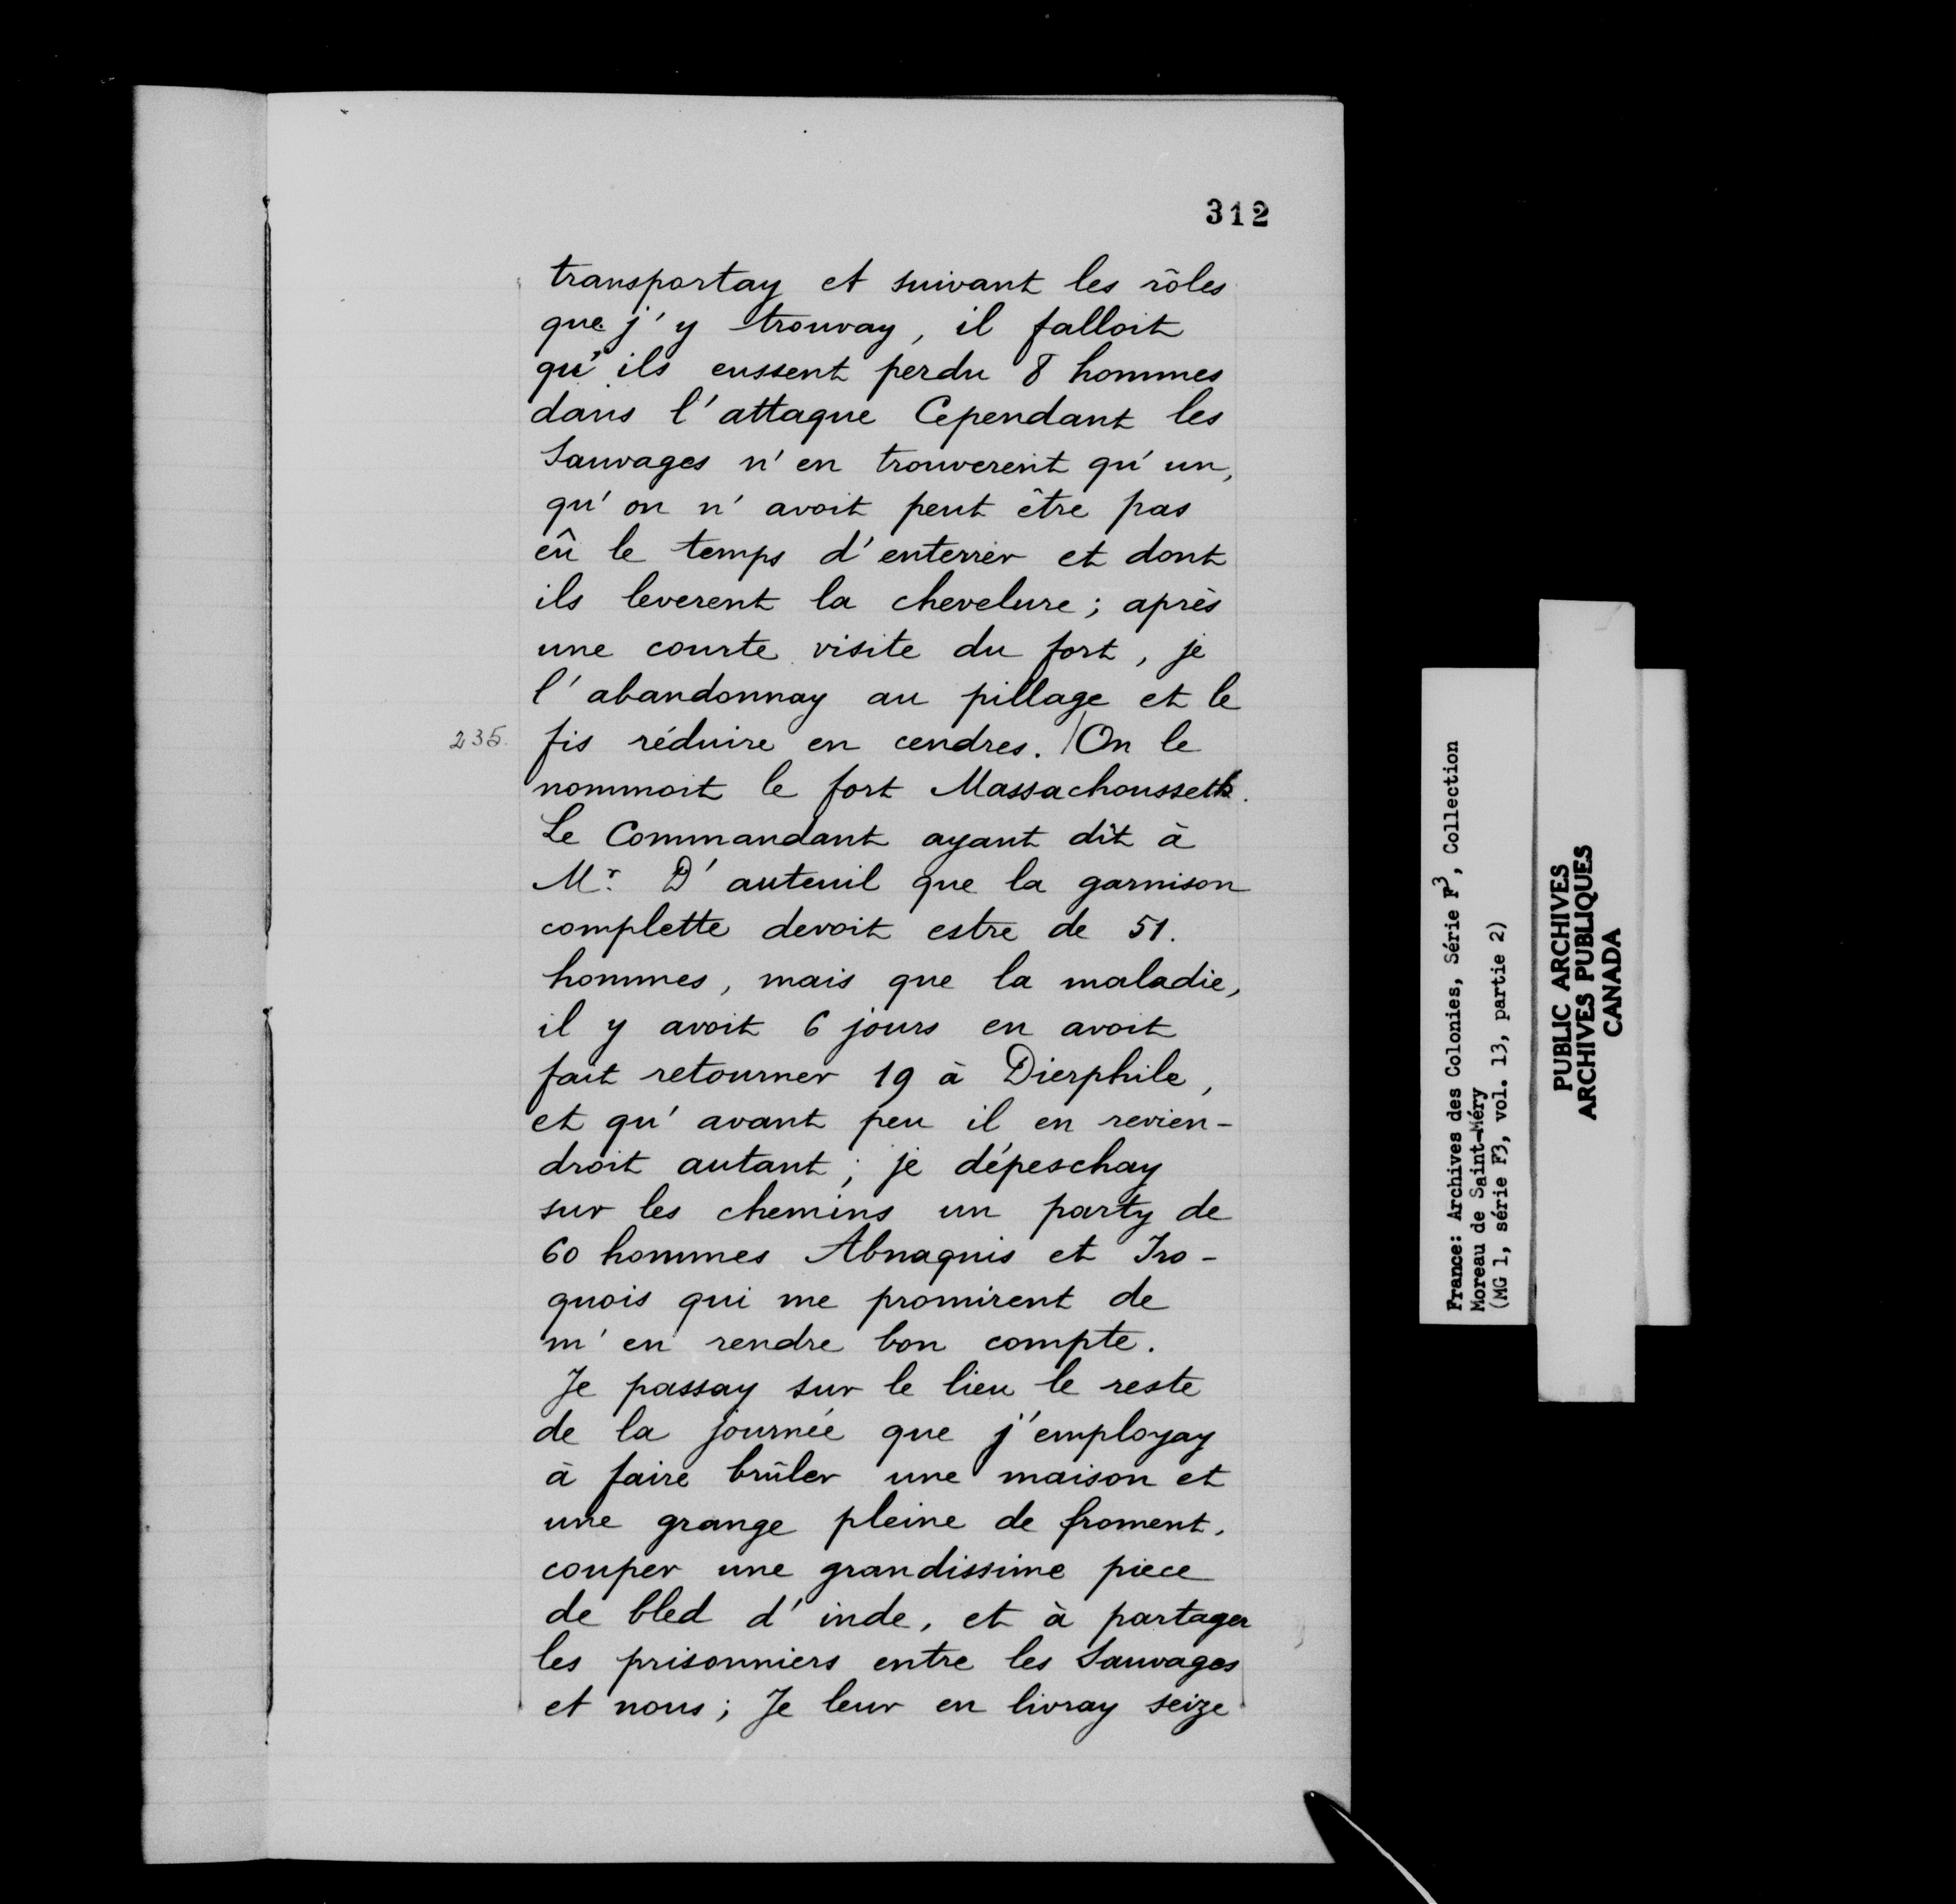 312
transportay et suivant les rôles
que j'y trouvay, il falloit
qu'ils eussent perdu 8 hommes
dans l'attaque Cependant les
Sauvages n'en trouverent qu'un,
qu'on n'avoit peut être pas
eû le temps d'enterrer et dont
ils leverent la chevelure; après
une courte visite du fort, je
l'abandonnay au pillage et le
235. fis réduire en cendres. / On le
nommoit le fort Massachoussets.
Le Commandant ayant dit à
Mr. D'auteuil que la garnison
complette devoit estre de 51.
hommes, mais que la maladie,
il y avoit 6 jours en avoit
fait retourner 19 à Dierphile,
et qu'avant peu il en revien-
droit autant; je dépeschay
sur les chemins un party de
60 hommes Abnaquis et Iro-
quois qui me promirent de
m'en rendre bon compte.
Je passay sur le lieu le reste
de la journée que j'employay
à faire brûler une maison et
une grange pleine de froment,
couper une grandissime piece
de bled d'inde, et à partager
les prisonniers entre les Sauvages
et nous; Je leur en livray seize
France: Archives des Colonies, Série F3, Collection
Moreau de Saint-Méry
(MG 1, série F3, vol. 13, partie 2)
PUBLIC ARCHIVES
ARCHIVES PUBLIQUES
CANADA